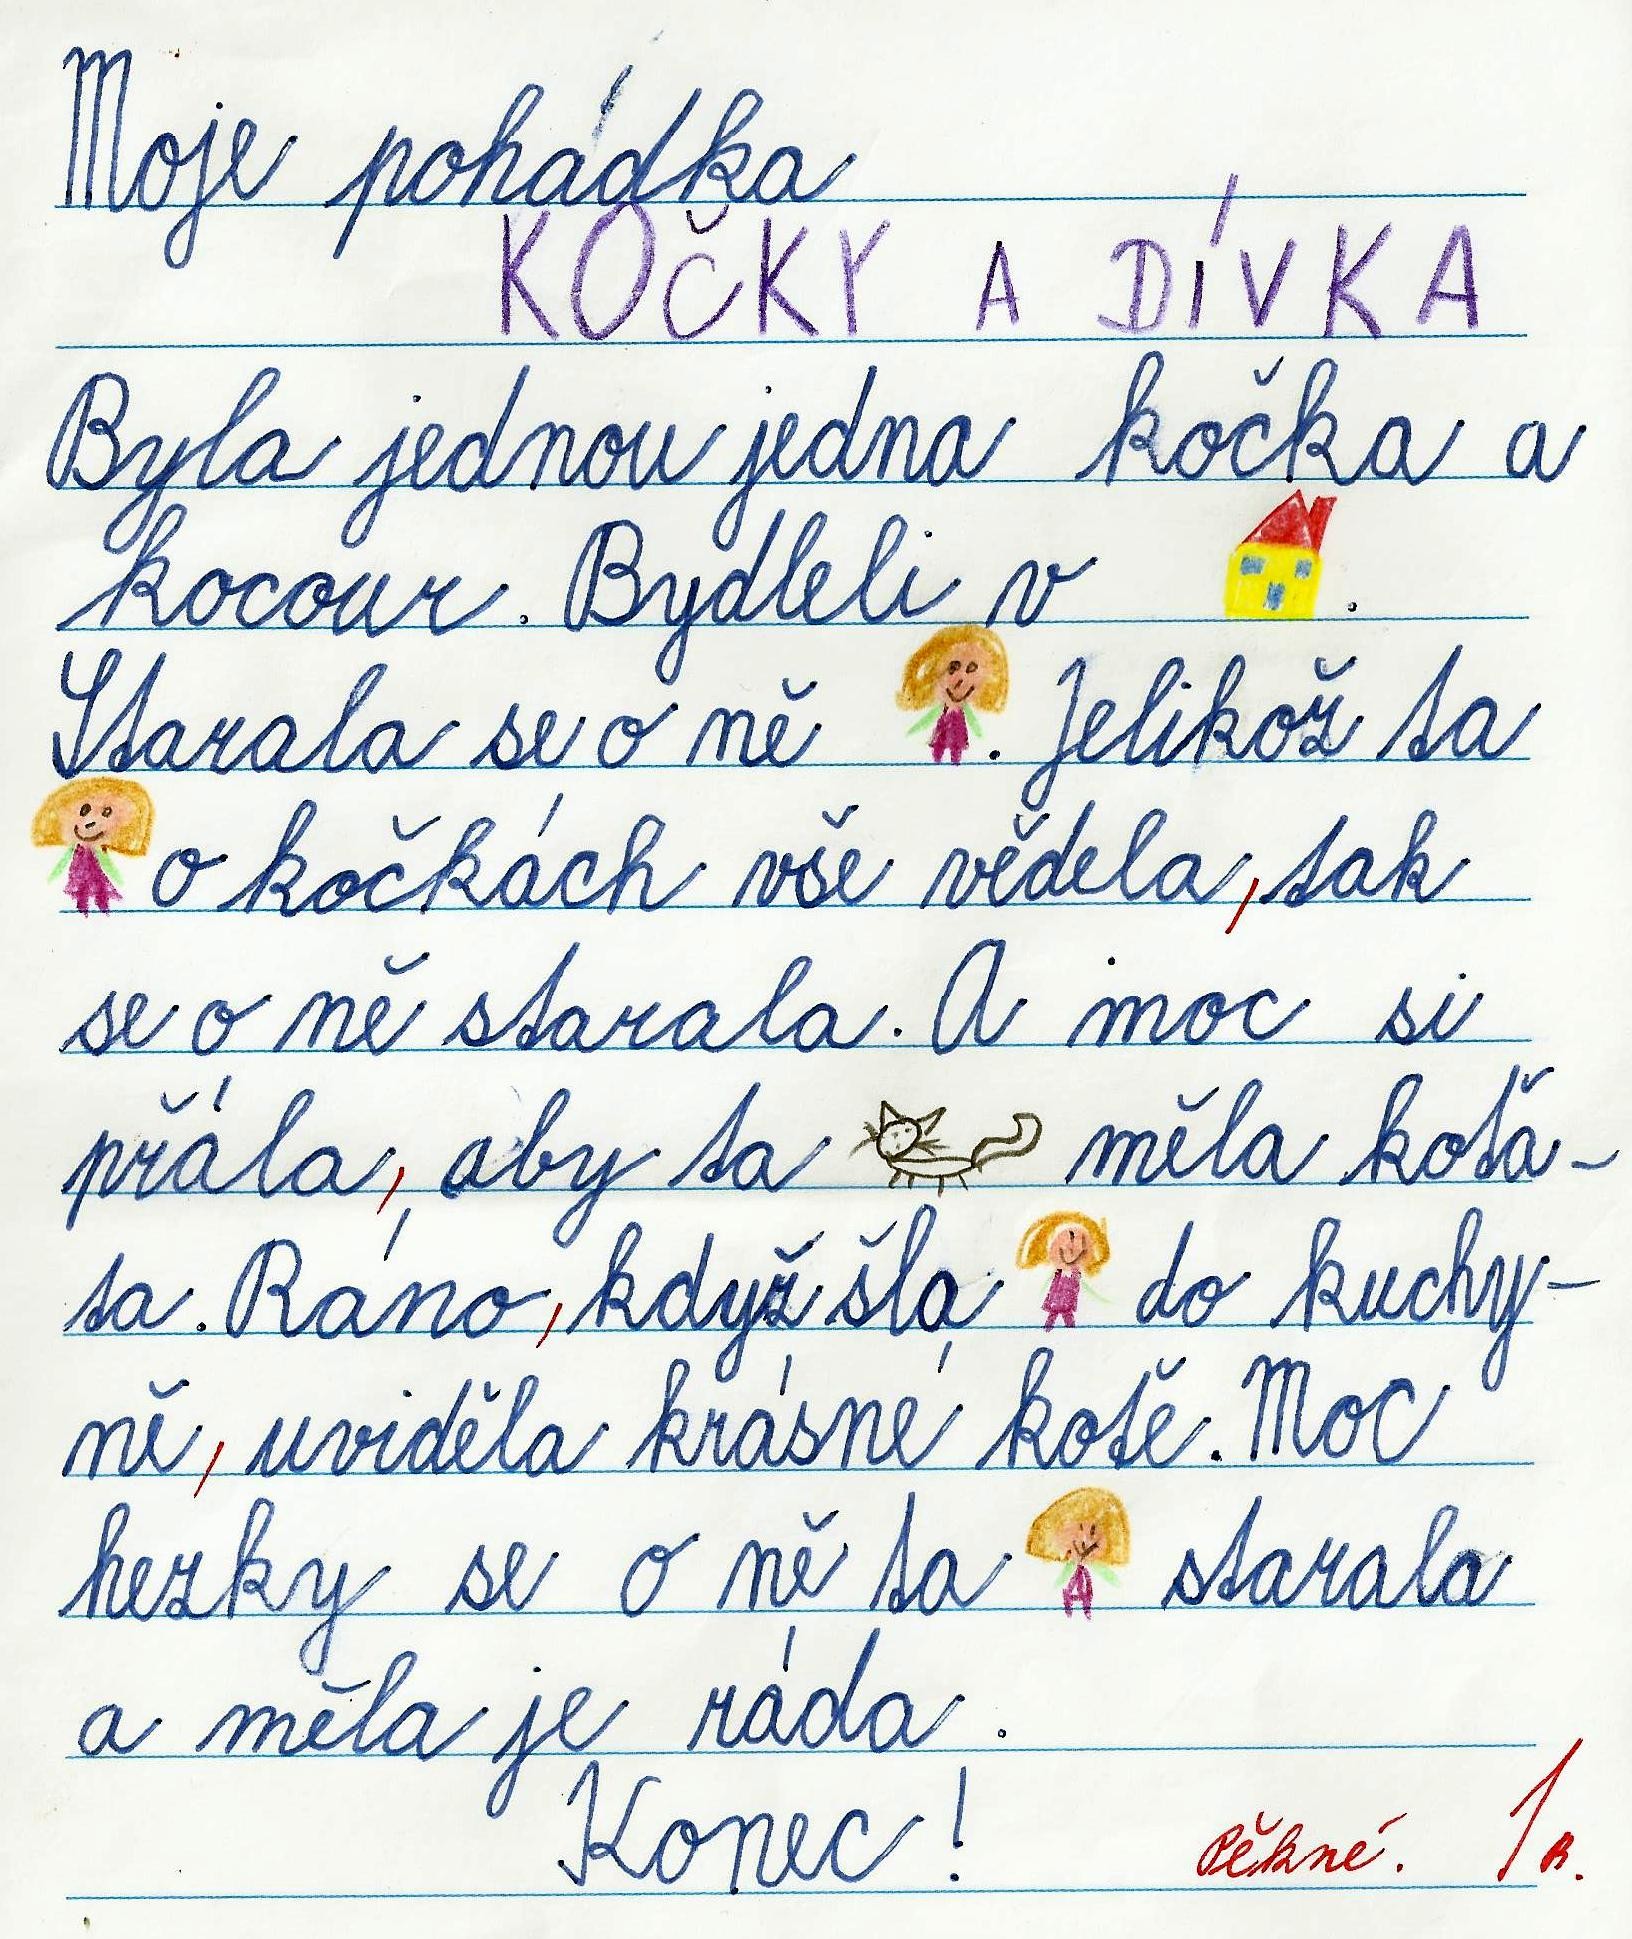 Moje pohádka
KOČKY A DÍVKA
Byla jednou jedna kočka a
kocour. Bydleli v .
Starala se o ně . Jelikož ta
o kočkách vše věděla, tak
se o ně starala. A moc si
přála, aby ta měla koťa-
ta. Ráno, když šla do kuchy-
ně, uviděla krásné kotě. Moc
hezky se o ně ta starala
a měla je ráda.
Konec!
Pěkné. 1